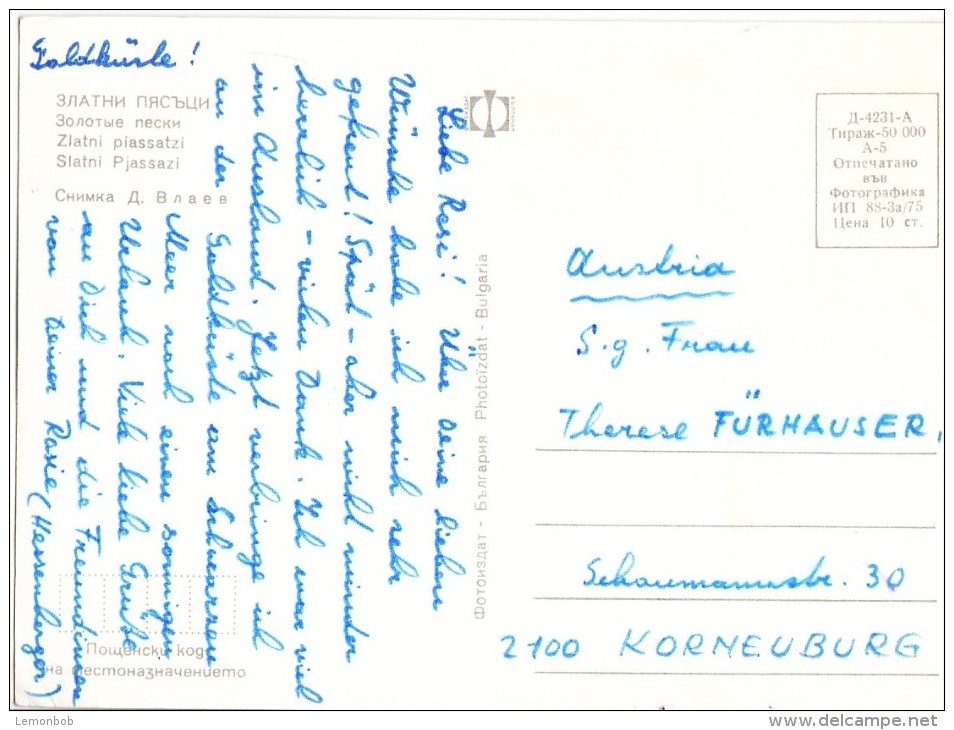 Goldküste!
ЗЛАТНИ ПЯСЪЦИ
Золотые пески
Zlatni piassatzi
Slatni Pjassazi
Снимка Д. Влаев
Liebe Resi! Über Deine lieben
Wünsche habe ich mich sehr
gefreut! Spät – aber nicht minder
herzlich – vielen Dank. Ich war viel
im Ausland. Jetzt verbringe ich
an der Goldküste am Schwarzen
Meer noch einen sonnigen
Urlaub. Viele liebe Grüße
an Dich und die Freundinnen
von Deiner Rosie (Hessenberger)
Пощенски код
на местоназначението
Фотоиздат - България Photoïzdat - Bulgaria
Д-4231-А
Тираж-50 000
А-5
Отпечатано
във
Фотографика
ИП 88-3а/75
Цена 10 ст.
Austria
S.g. Frau
Therese FÜRHAUSER,
Schaumannstr. 30
2100 KORNEUBURG
Lemonbob
http://www.delcampe.net